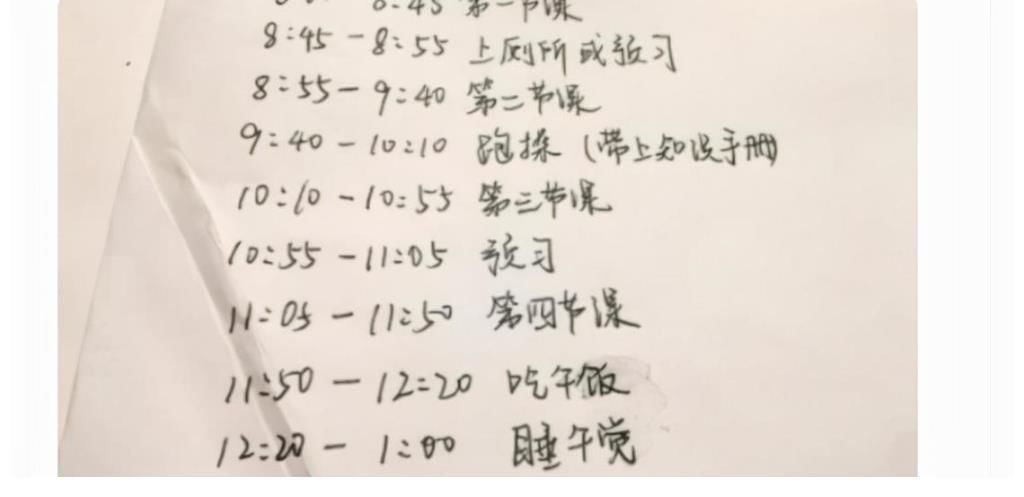 8:45 第一节课
8:45 - 8:55 上厕所或预习
8:55 - 9:40 第二节课
9:40 - 10:10 跑操 (带上知识手册)
10:10 - 10:55 第三节课
10:55 - 11:05 预习
11:05 - 11:50 第四节课
11:50 - 12:20 吃午饭
12:20 - 1:00 睡午觉